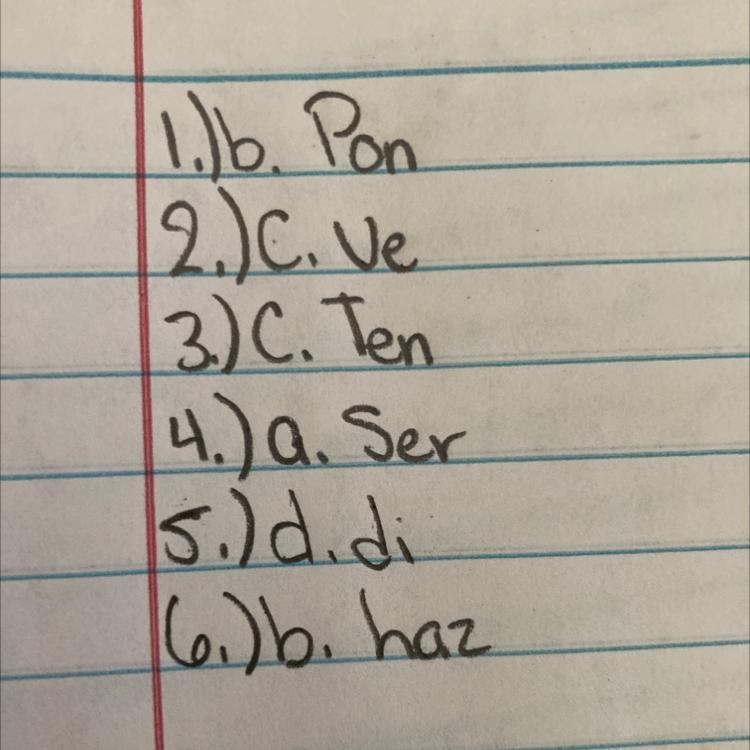 1.) b. Pon
2.) C. Ve
3.) C. Ten
4.) a. Ser
5.) d. di
6.) b. haz